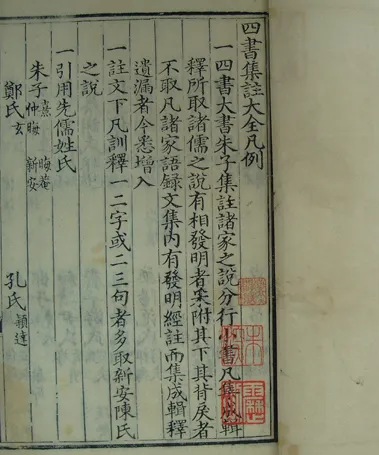 四書集註大全凡例
一四書大書朱子集註諸家之說分行小書凡集成輯
釋所取諸儒之說有相發明者采附其下其背戾者
不取凡諸家語録文集內有發明經註而集成輯釋
遺漏者今悉增入
一註文下凡訓釋一二字或二三句者多取新安陳氏
之說
一引用先儒姓氏
朱子 熹 仲晦 晦菴 新安
鄭氏 玄 孔氏 穎達